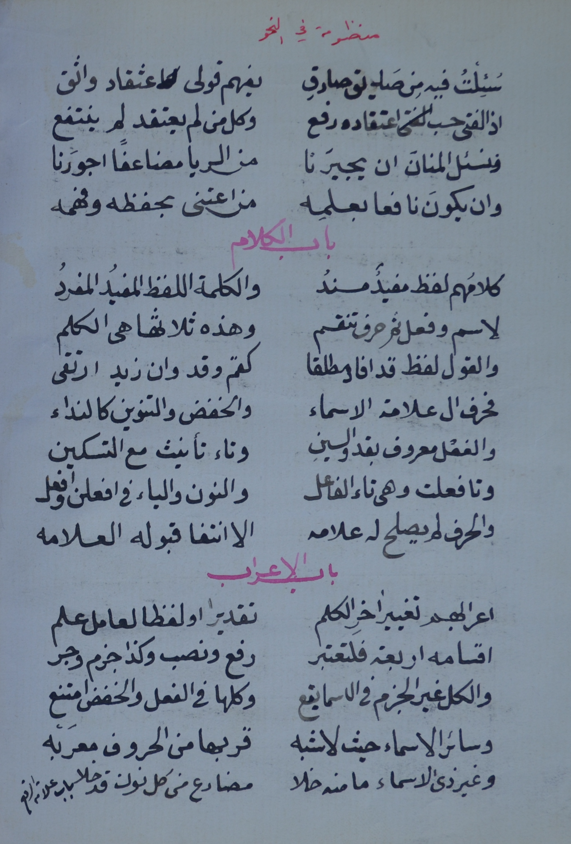 منظومة في النحو
سئلت فيه من صديق صادق يفهم قولى لاعتقاد واثق
اذ الفتى حسب اعتقاده رفع وكل من لم يعتقد لم ينتفع
فنسئل المنان ان يجيرنا من الريا مضاعفا اجورنا
وان يكون نافعا بعلمه من اعتنى بحفظه وفهمه
باب الكلام
كلامهم لفظ مفيد مسند والكلمة اللفظ المفيد المفرد
لاسم وفعل ثم حرف تنقسم وهذه ثلاثها هى الكلم
والقول لفظ قد افاد مطلقا كقم وقد وان زيد ارتقى
فحرف ال علامة الاسماء والخفض والتنوين كالنداء
والفعل معروف بقد والسين وتاء تأنيث مع التسكين
وتا فعلت وهى تاء الفاعل والنون والياء فى افعلن وافعل
والحرف لم يصلح له علامه الا انتفا قبوله العلامه
باب الاعراب
اعرابهم تغيير اخر الكلم تقديرا او لفظا لعامل علم
اقسامه اربعة فلتعتبر رفع ونصب وكذا جزم وجر
والكل غير الجزم فى الاسما يقع وكلها فى الفعل والخفض امتنع
وسائر الاسماء حيث لا شبه قربها من الحروف معربه
وغير ذى الاسماء ما منه خلا مضارع من كل نون قد خلا باب علامة الرفع